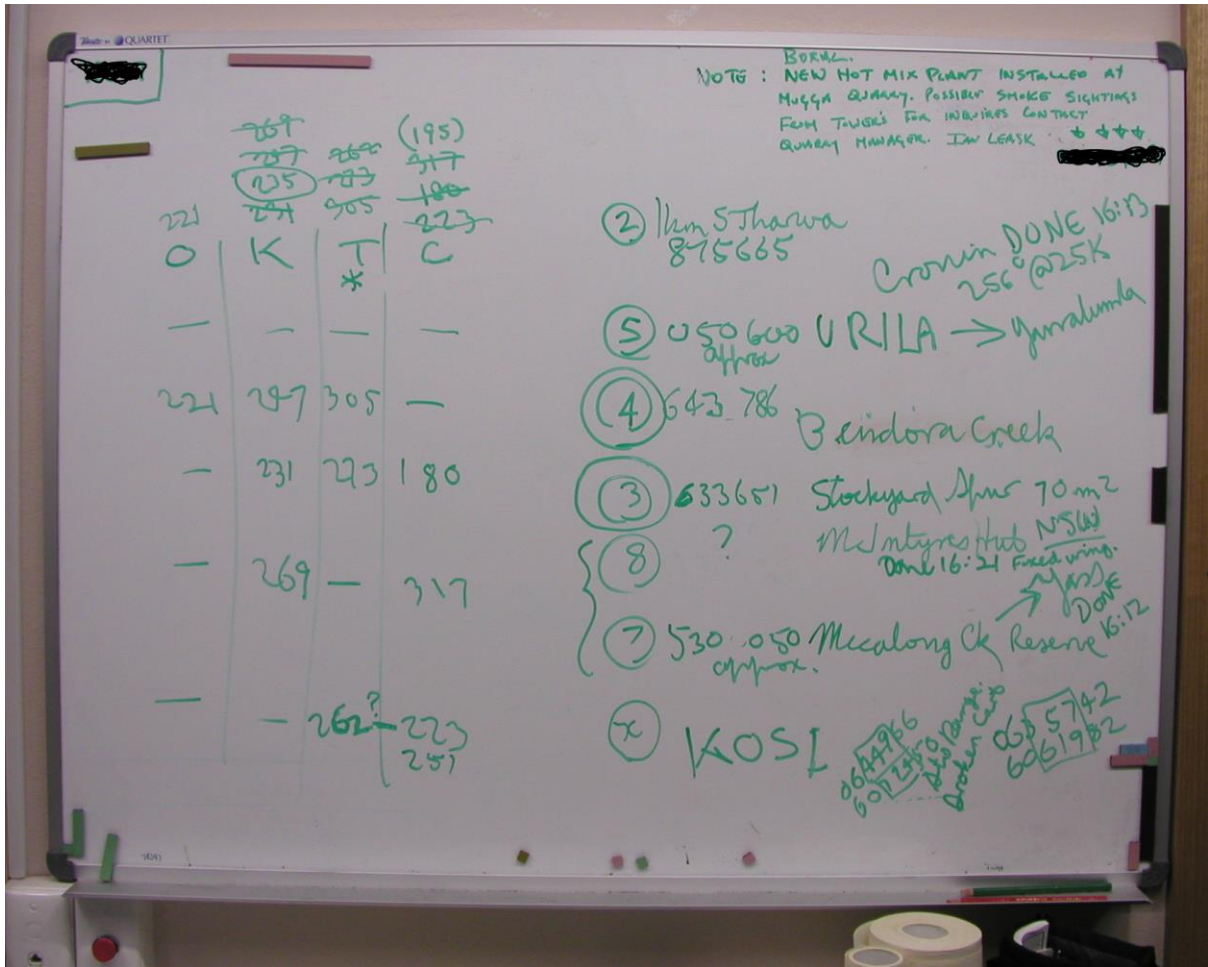 QUARTET
BORAL.
NOTE : NEW HOT MIX PLANT INSTALLED AT
MUGGA QUARRY. POSSIBLE SMOKE SIGHTINGS
FROM TOWER'S FOR INQUIRES CONTACT
QUARRY MANAGER. IAN LEASK
269 (195)
317
235 273
231 305 180
221 223
O K T C
*
— — — —
221 297 305 —
— 231 273 180
— 269 — 317
— — 262? — 223
251
② 1km S Tharwa
875665
Cronin DONE 16:13
256° @25K
⑤ 050600 URILA → Yarralumla
approx
④ 643 786 Bendora Creek
③ 633651 Stockyard Spur 70 m2
⑧ ? McIntyres Hut NSW
Done 16:21 Fixed wing.
⑦ 530 050 Mccalong Ck Reserve → Yass DONE 16:12
approx.
x KOSI
Broken Cart